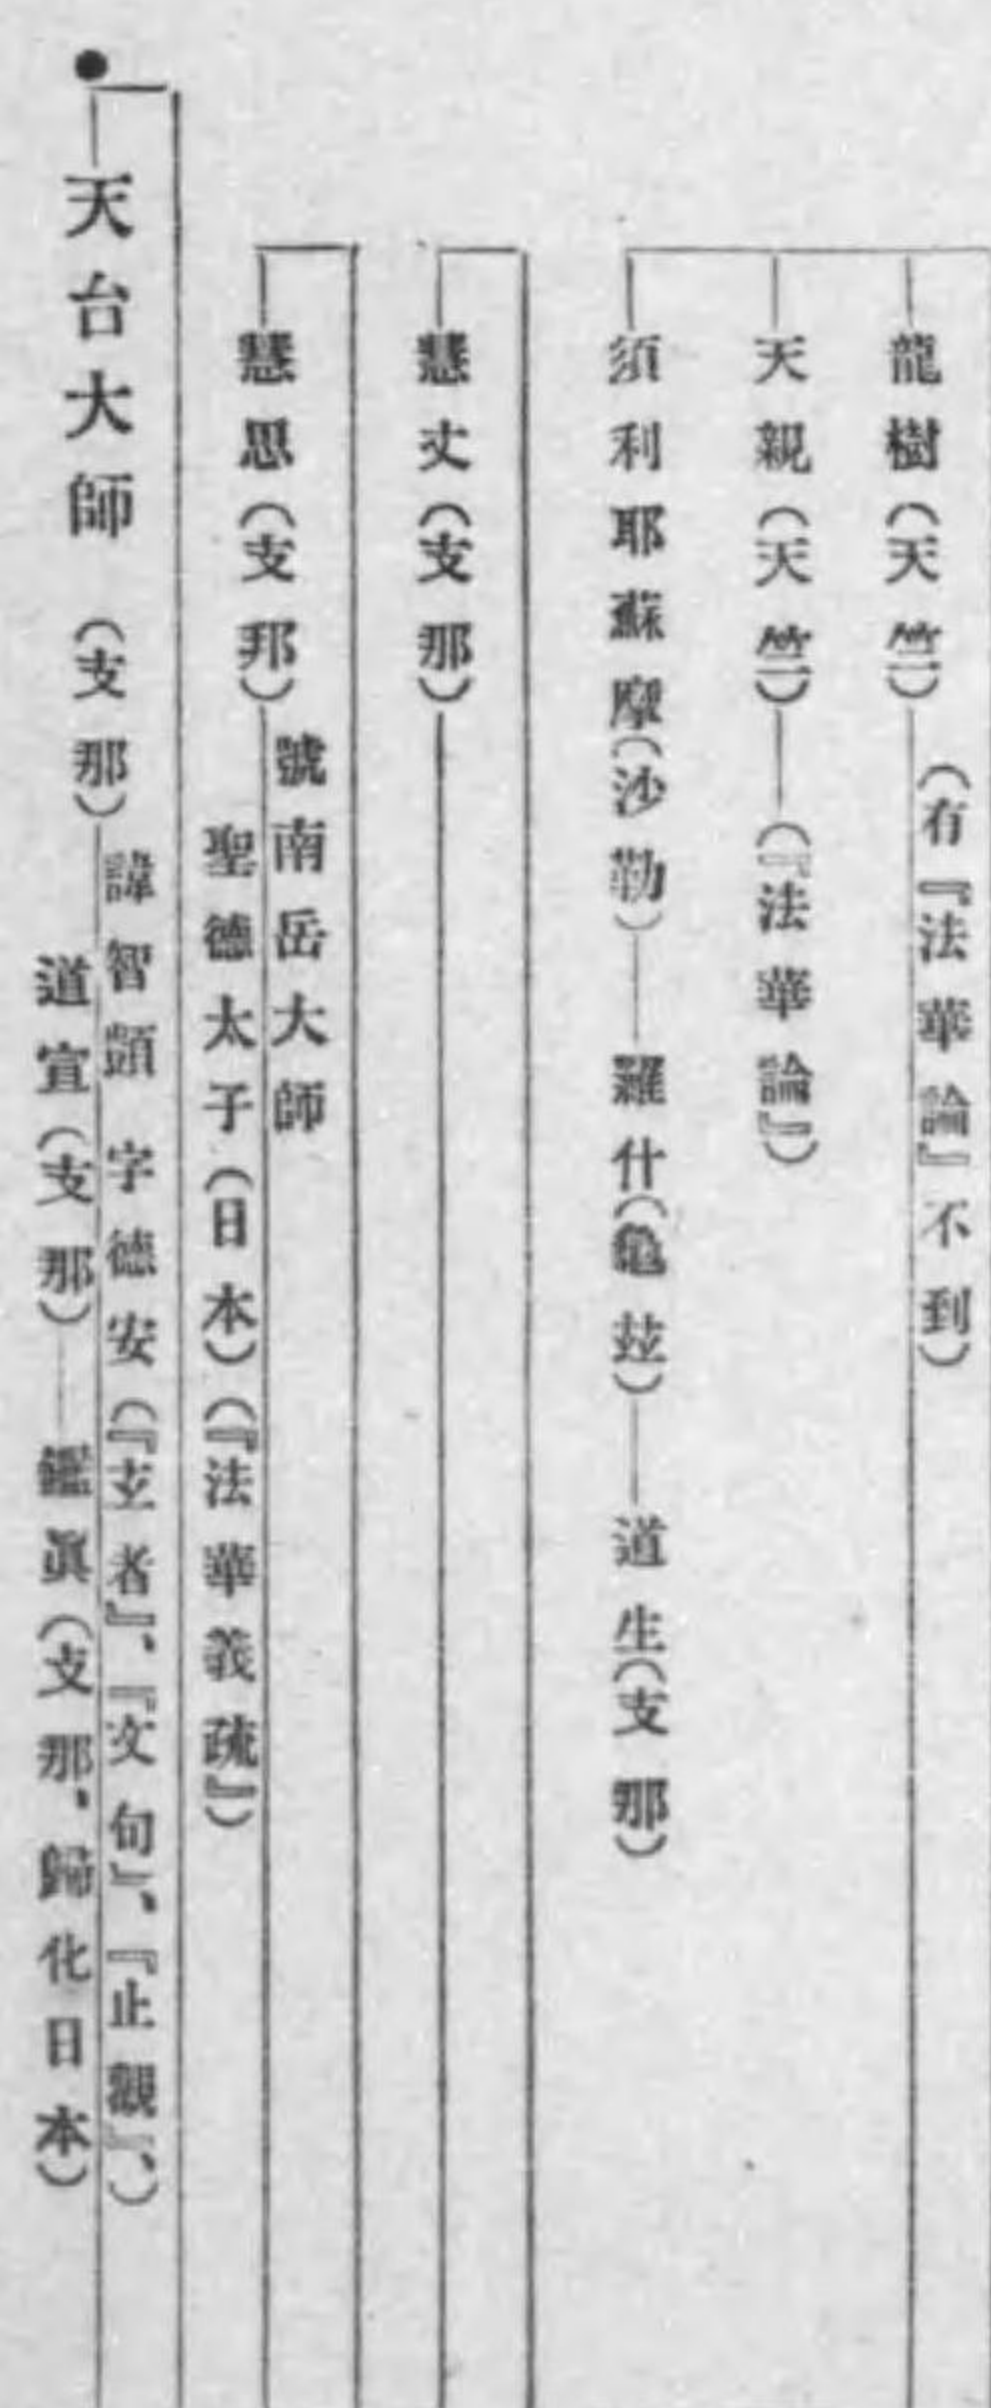 龍樹(天竺)
(有『法華論』不到)
天親(天竺)(『法華論』)
須利耶蘇摩(沙勒)羅什(龜玆)道生(支那)
慧文(支那)
慧思(支那)
號南岳大師
聖德太子(日本)(『法華義疏』)
天台大師 (支那)
諱智顗 字德安(『玄者』、『文句』、『止觀』、)
道宣(支那)鑑眞(支那、歸化日本)